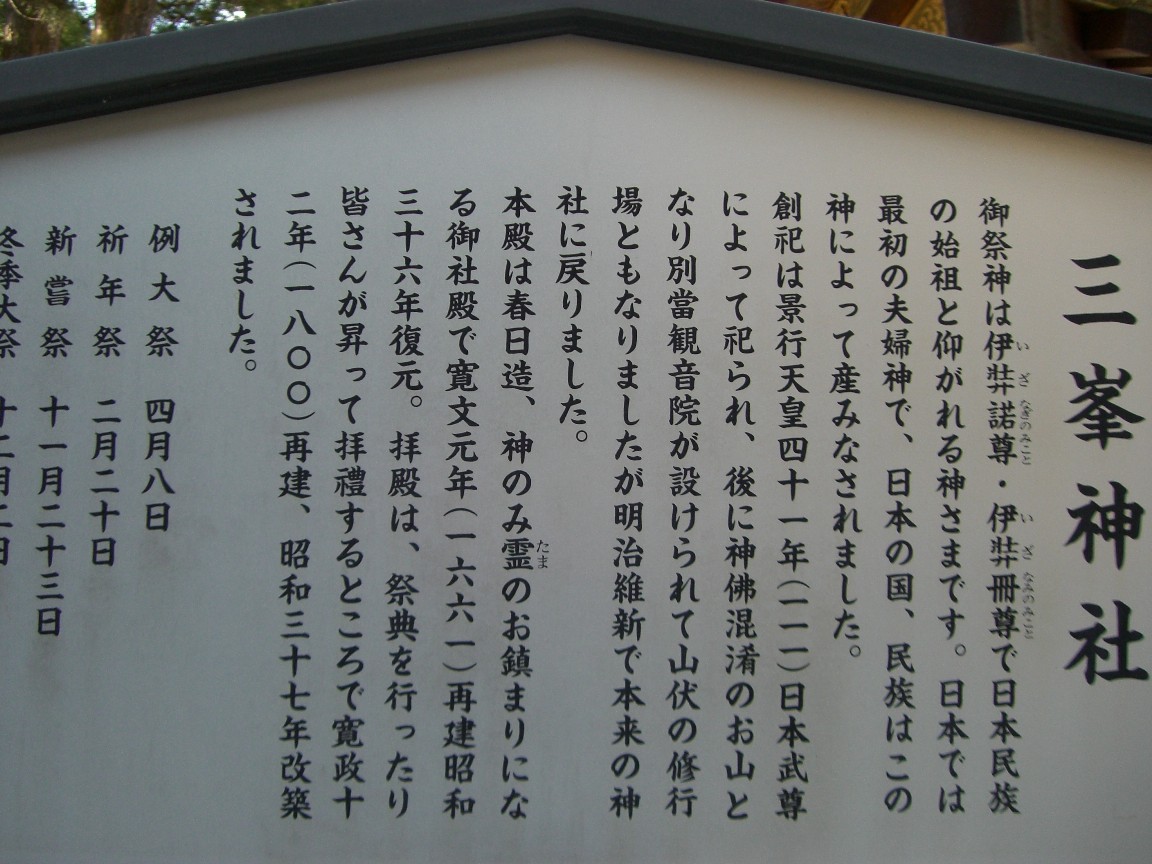 三峯神社
御祭神は伊弉諾尊・伊弉冊尊で日本民族
の始祖と仰がれる神さまです。日本では
最初の夫婦神で、日本の国、民族はこの
神によって産みなされました。
創祀は景行天皇四十一年(一一一)日本武尊
によって祀られ、後に神佛混淆のお山と
なり別當観音院が設けられて山伏の修行
場ともなりましたが明治維新で本来の神
社に戻りました。
本殿は春日造、神のみ霊のお鎮まりにな
る御社殿で寛文元年(一六六一)再建昭和
三十六年復元。拝殿は、祭典を行ったり
皆さんが昇って拝禮するところで寛政十
二年(一八〇〇)再建、昭和三十七年改築
されました。
例大祭 四月八日
祈年祭 二月二十日
新嘗祭 十一月二十三日
冬季大祭 十二月二日
い ざ なぎのみこと
い ざ なみのみこと
たま